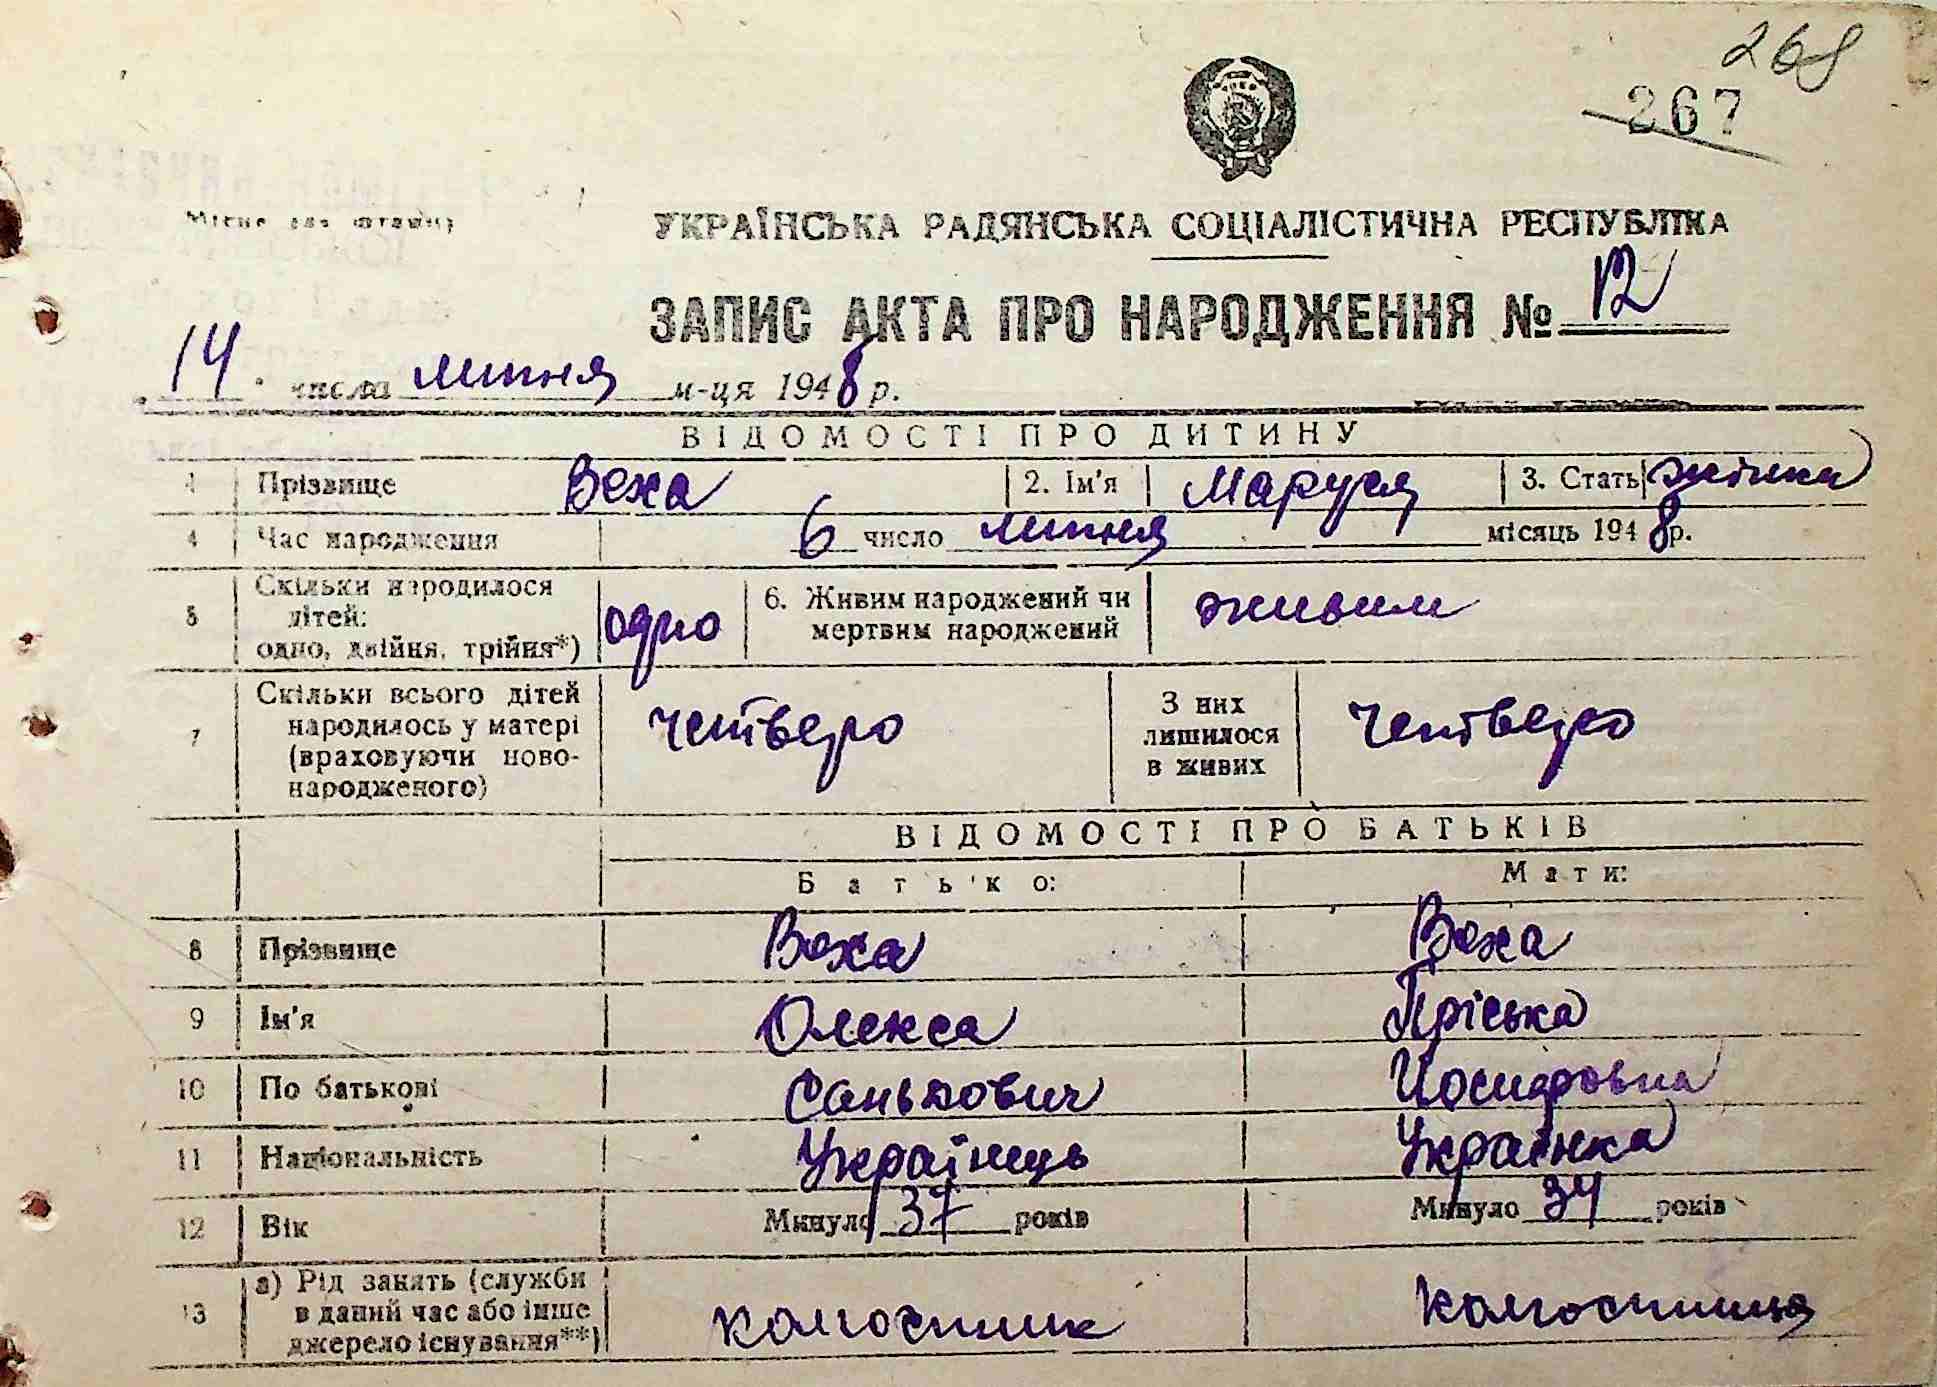 268
267
Місце для штампу
УКРАЇНСЬКА РАДЯНСЬКА СОЦІАЛІСТИЧНА РЕСПУБЛІКА
ЗАПИС АКТА ПРО НАРОДЖЕННЯ № 12
14 числа липня м-ця 1948 р.
ВІДОМОСТІ ПРО ДИТИНУ
1 Прізвище Веха 2. Ім'я Маруся 3. Стать жінка
4 Час народження 6 число липня місяць 1948 р.
5 Скільки народилося
дітей:
одно, двійня, трійня*) одно
6. Живим народжений чи
мертвим народжений живим
7 Скільки всього дітей
народилось у матері
(враховуючи ново-
народженого) четверо
З них
лишилося
в живих четверо
ВІДОМОСТІ ПРО БАТЬКІВ
Батько: Мати:
8 Прізвище Веха Веха
9 Ім'я Олекса Пріська
10 По батькові Санькович Иосиповна
11 Національність Українець Українка
12 Вік Минуло 37 років Минуло 34 років
13 а) Рід занять (служби
в даний час або інше
джерело існування**) колгоспник колгоспниця